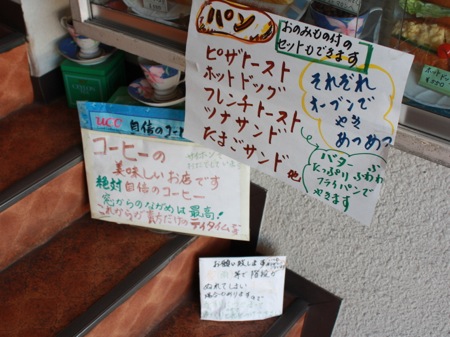 パン
おのみもの付の
セットもできます
ピザトースト
ホットドッグ
フレンチトースト
ツナサンド
たまごサンド
他
それぞれ
オーブンで
やき
あつあつ
バター
たっぷり
ふわふわ
フライパンで
やきます
UCC 自信のコーヒー
コーヒーの
美味しいお店です
絶対 自信のコーヒー
窓からのながめは最高!
これからが貴方だけのティタイムです
お願い致します
階段が
ぬれてしまい
ホットドッグ